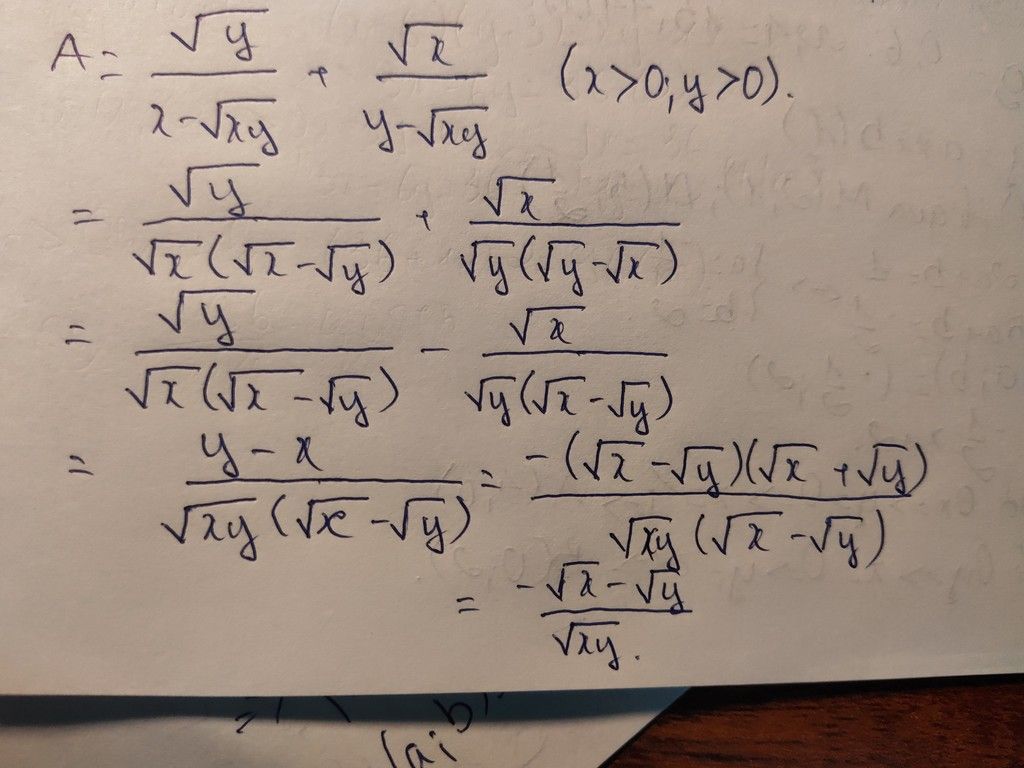 A = \frac{\sqrt{y}}{x-\sqrt{xy}} + \frac{\sqrt{x}}{y-\sqrt{xy}} (x>0; y>0).
= \frac{\sqrt{y}}{\sqrt{x}(\sqrt{x}-\sqrt{y})} + \frac{\sqrt{x}}{\sqrt{y}(\sqrt{y}-\sqrt{x})}
= \frac{\sqrt{y}}{\sqrt{x}(\sqrt{x}-\sqrt{y})} - \frac{\sqrt{x}}{\sqrt{y}(\sqrt{x}-\sqrt{y})}
= \frac{y-x}{\sqrt{xy}(\sqrt{x}-\sqrt{y})} = \frac{-(\sqrt{x}-\sqrt{y})(\sqrt{x}+\sqrt{y})}{\sqrt{xy}(\sqrt{x}-\sqrt{y})}
= \frac{-\sqrt{x}-\sqrt{y}}{\sqrt{xy}}.